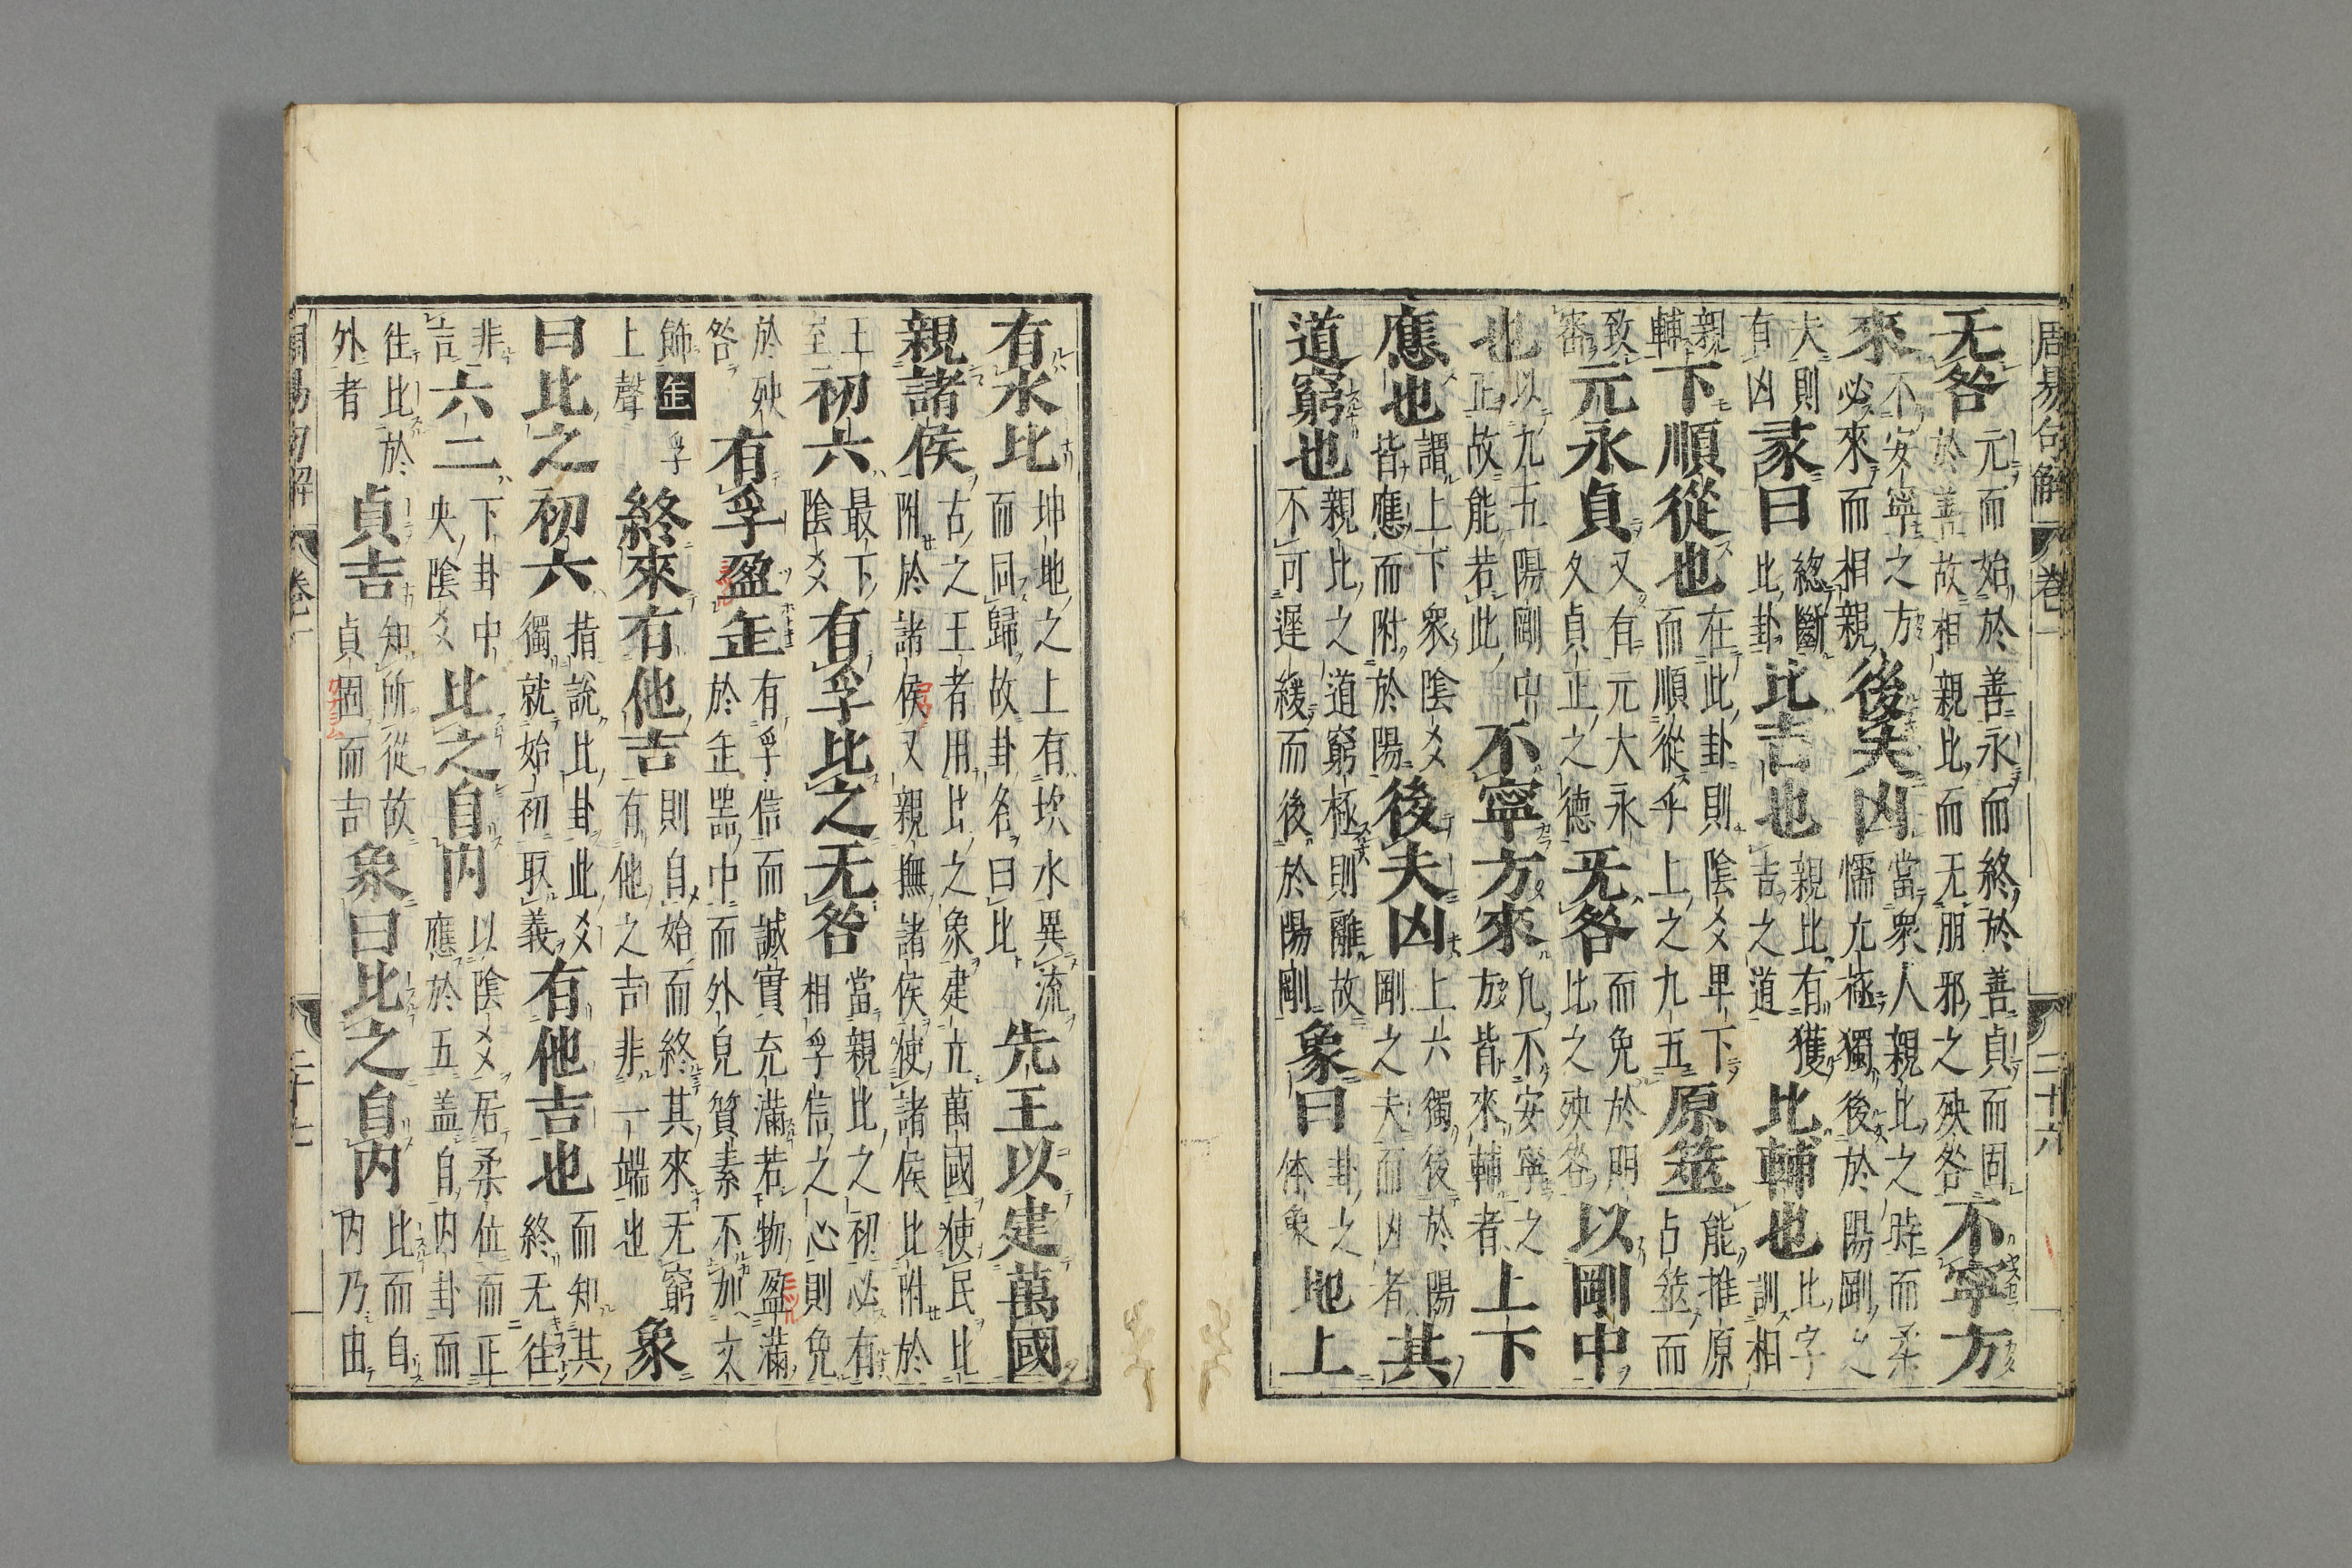 周易句解 卷一 二十六
无咎元而始於善永而終於善貞而固於善故相親比而无朋邪之殃咎不寧方
來不安寧之方必來而相親後夫凶當衆人親比之時而柔懦亢極獨後於陽剛之
夫則有凶彖曰緫斷此卦比吉也親比有獲吉之道比輔也比字訓相
親輔下順從也在此卦則陰爻卑下而順從乎上之九五原筮能推原占筮而
致審元永貞又有元大永久貞正之德无咎而免於明比之殃咎以剛中
也以九五陽剛中正故能若此不寧方來凡不安寧之方皆來輔者上下
應也謂上下衆陰爻皆應而附於陽後夫凶上六獨後於陽剛之夫而凶者其
道窮也親比之道窮極則離故不可遲緩而後於陽剛象曰卦之体象地上
有水比坤地之上有坎水異流而同歸故卦名曰比先王以建萬國
親諸侯古之王者用比之象建立萬國使民比附於諸侯又親撫諸侯使諸侯比附於
王至初六最下陰爻有孚比之无咎當親比之初必有相孚信之心則免
於殃咎有孚盈缶有孚信而誠實充滿若物盈滿於缶噐中而外皃質素不加文
飾缶孚上聲終來有他吉則自始而終其來无窮有他之吉非一端也象
曰比之初六指說比卦此爻獨就始初取義有他吉也而知其終无往
非吉六二下卦中央陰爻比之自内以陰爻居柔位而正應於五盖自内卦而
往比於外者貞吉知所從故貞固而吉象曰比之自内比而自内乃由
周易句解 卷一 二十七